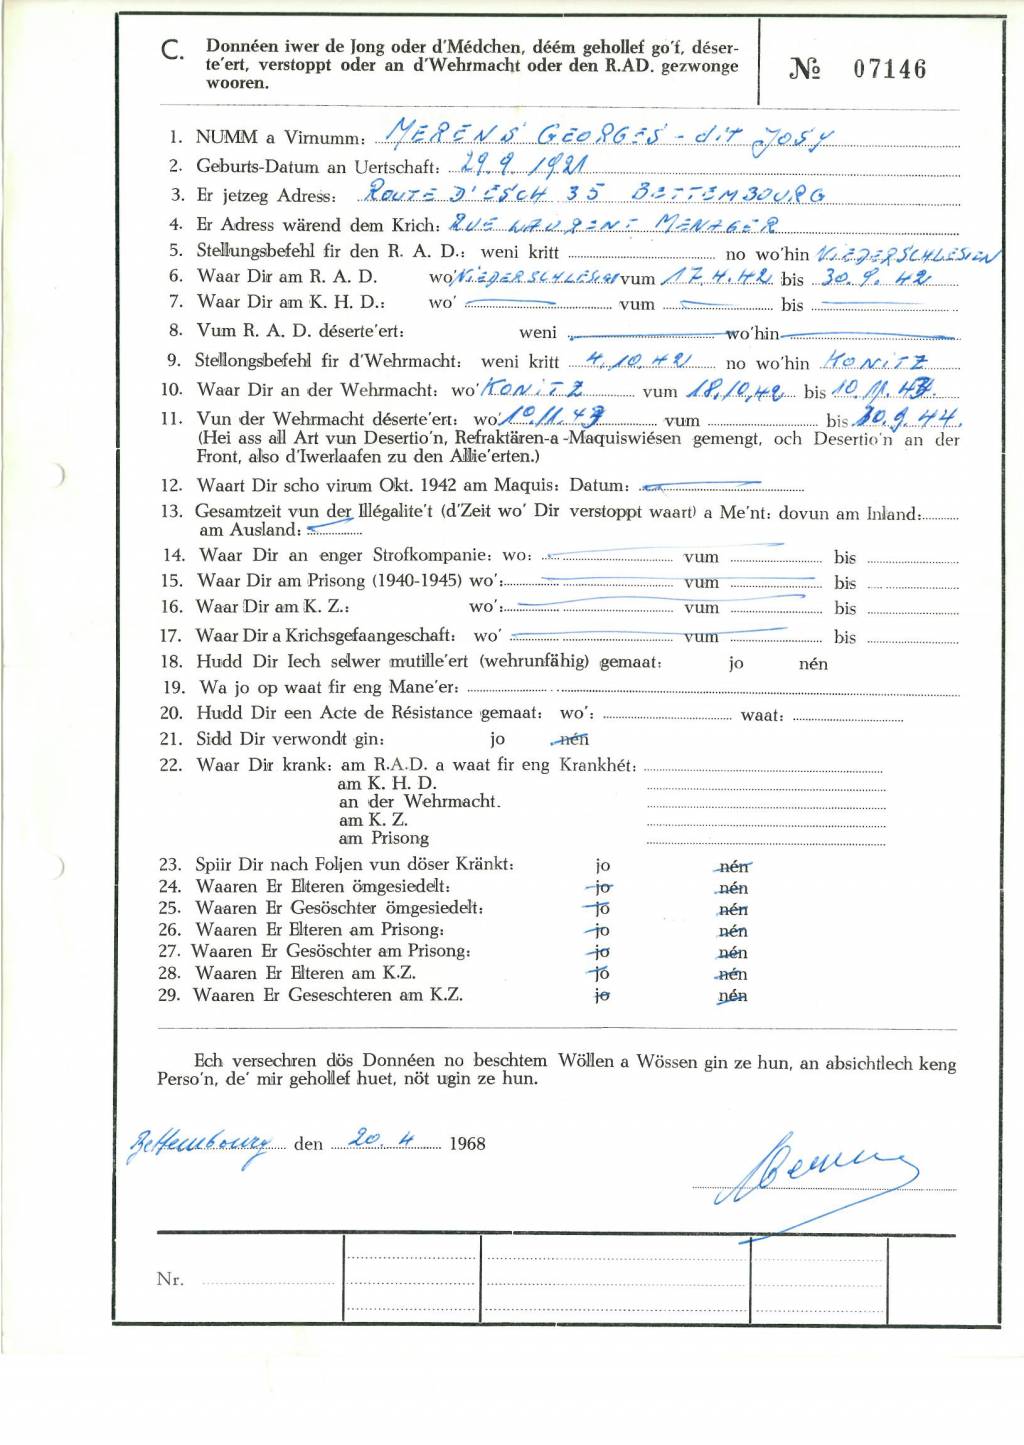 C. Donnéen iwer de Jong oder d'Médchen, déém gehollef go'f, déser-
te'ert, verstoppt oder an d'Wehrmacht oder den R.AD. gezwonge
wooren.
№ 07146
1. NUMM a Virnumm: MERENS GEORGES - dit JOSY
2. Geburts-Datum an Uertschaft: 29.9.1921
3. Er jetzeg Adress: ROUTE D'ESCH 35 BETTEMBOURG
4. Er Adress wärend dem Krich: RUE LAURENT MENAGER
5. Stellungsbefehl fir den R. A. D.: weni kritt no wo'hin NIEDERSCHLESIEN
6. Waar Dir am R. A. D. wo' NIEDERSCHLESIEN vum 17.4.42 bis 30.9.42
7. Waar Dir am K. H. D.: wo' vum bis
8. Vum R. A. D. déserte'ert: weni wo'hin
9. Stellongsbefehl fir d'Wehrmacht: weni kritt 4.10.42 no wo'hin KONITZ
10. Waar Dir an der Wehrmacht: wo' KONITZ vum 18.10.42 bis 10.11.43.
11. Vun der Wehrmacht déserte'ert: wo' 10.11.43 vum bis 30.9.44.
(Hei ass all Art vun Desertio'n, Refraktären-a-Maquiswiésen gemengt, och Desertio'n an der
Front, also d'Iwerlaafen zu den Allie'erten.)
12. Waart Dir scho virum Okt. 1942 am Maquis: Datum:
13. Gesamtzeit vun der Illégalite't (d'Zeit wo' Dir verstoppt waart) a Me'nt: dovun am Inland:
am Ausland:
14. Waar Dir an enger Strofkompanie: wo: vum bis
15. Waar Dir am Prisong (1940-1945) wo': vum bis
16. Waar Dir am K. Z.: wo': vum bis
17. Waar Dir a Krichsgefaangeschaft: wo' vum bis
18. Hudd Dir Iech selwer mutille'ert (wehrunfähig) gemaat: jo nén
19. Wa jo op waat fir eng Mane'er:
20. Hudd Dir een Acte de Résistance gemaat: wo': waat:
21. Sidd Dir verwondt gin: jo nén
22. Waar Dir krank: am R.A.D. a waat fir eng Krankhét:
am K. H. D.
an der Wehrmacht.
am K. Z.
am Prisong
23. Spiir Dir nach Foljen vun döser Kränkt: jo nén
24. Waaren Er Elteren ömgesiedelt: jo nén
25. Waaren Er Gesöschter ömgesiedelt: jo nén
26. Waaren Er Elteren am Prisong: jo nén
27. Waaren Er Gesöschter am Prisong: jo nén
28. Waaren Er Elteren am K.Z. jo nén
29. Waaren Er Geseschteren am K.Z. jo nén
Ech versechren dös Donnéen no beschtem Wöllen a Wössen gin ze hun, an absichtlech keng
Perso'n, de' mir gehollef huet, nöt ugin ze hun.
Bettembourg den 20.4 1968
Nr.